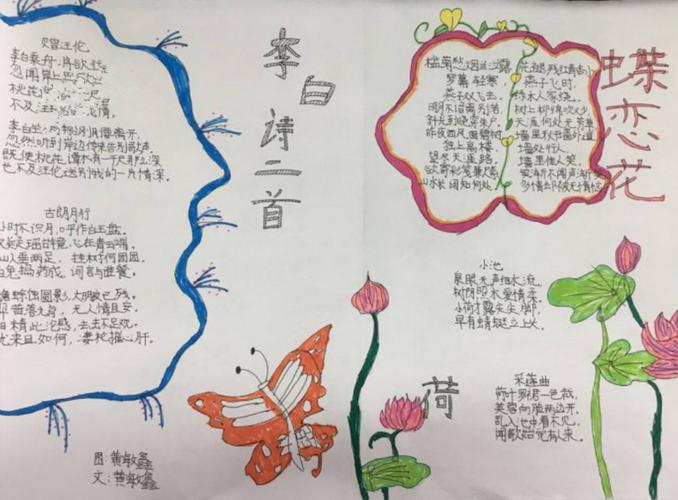 李白诗二首
赠汪伦
李白乘舟将欲
忽闻岸上
桃花
不及汪伦 情。
李白坐 刚刚 离开，
忽然听到岸边传来告别 声。
即使桃花潭水有一千尺那么深
也不及汪伦送别我的一片情深。
古朗月行
小时不识月，呼作白玉盘。
又疑瑶台镜，飞在青云端。
仙人垂两足，桂树何团团。
白兔捣药成，问言与谁餐。
蟾蜍蚀圆影，大明夜已残。
羿昔落九乌，天人清且安。
阴精此沦惑，去去不足观。
忧来其如何，凄怆摧心肝。
图：黄敏鑫
文：黄敏鑫
蝶恋花
槛菊愁烟兰泣露
罗幕轻寒，
燕子双飞去。
明月不谙离别苦
斜光到晓穿朱户。
昨夜西风凋碧树
独上高楼
望尽天涯路，
欲寄彩笺兼尺素
山水长阔知何处
花褪残红青杏小
燕子飞时，
绿水人家绕。
枝上柳绵吹又少
天涯何处无芳草
墙里秋千墙外道
墙外行人，
墙里佳人笑，
笑渐不闻声渐
多情却被无情恼
荷
小池
泉眼无声惜细流，
树阴照水爱晴柔。
小荷才露尖尖脚，
早有蜻蜓立上头。
采莲曲
荷叶罗裙一色裁，
芙蓉向脸两边开。
乱入池中看不见，
闻歌始觉有人来。